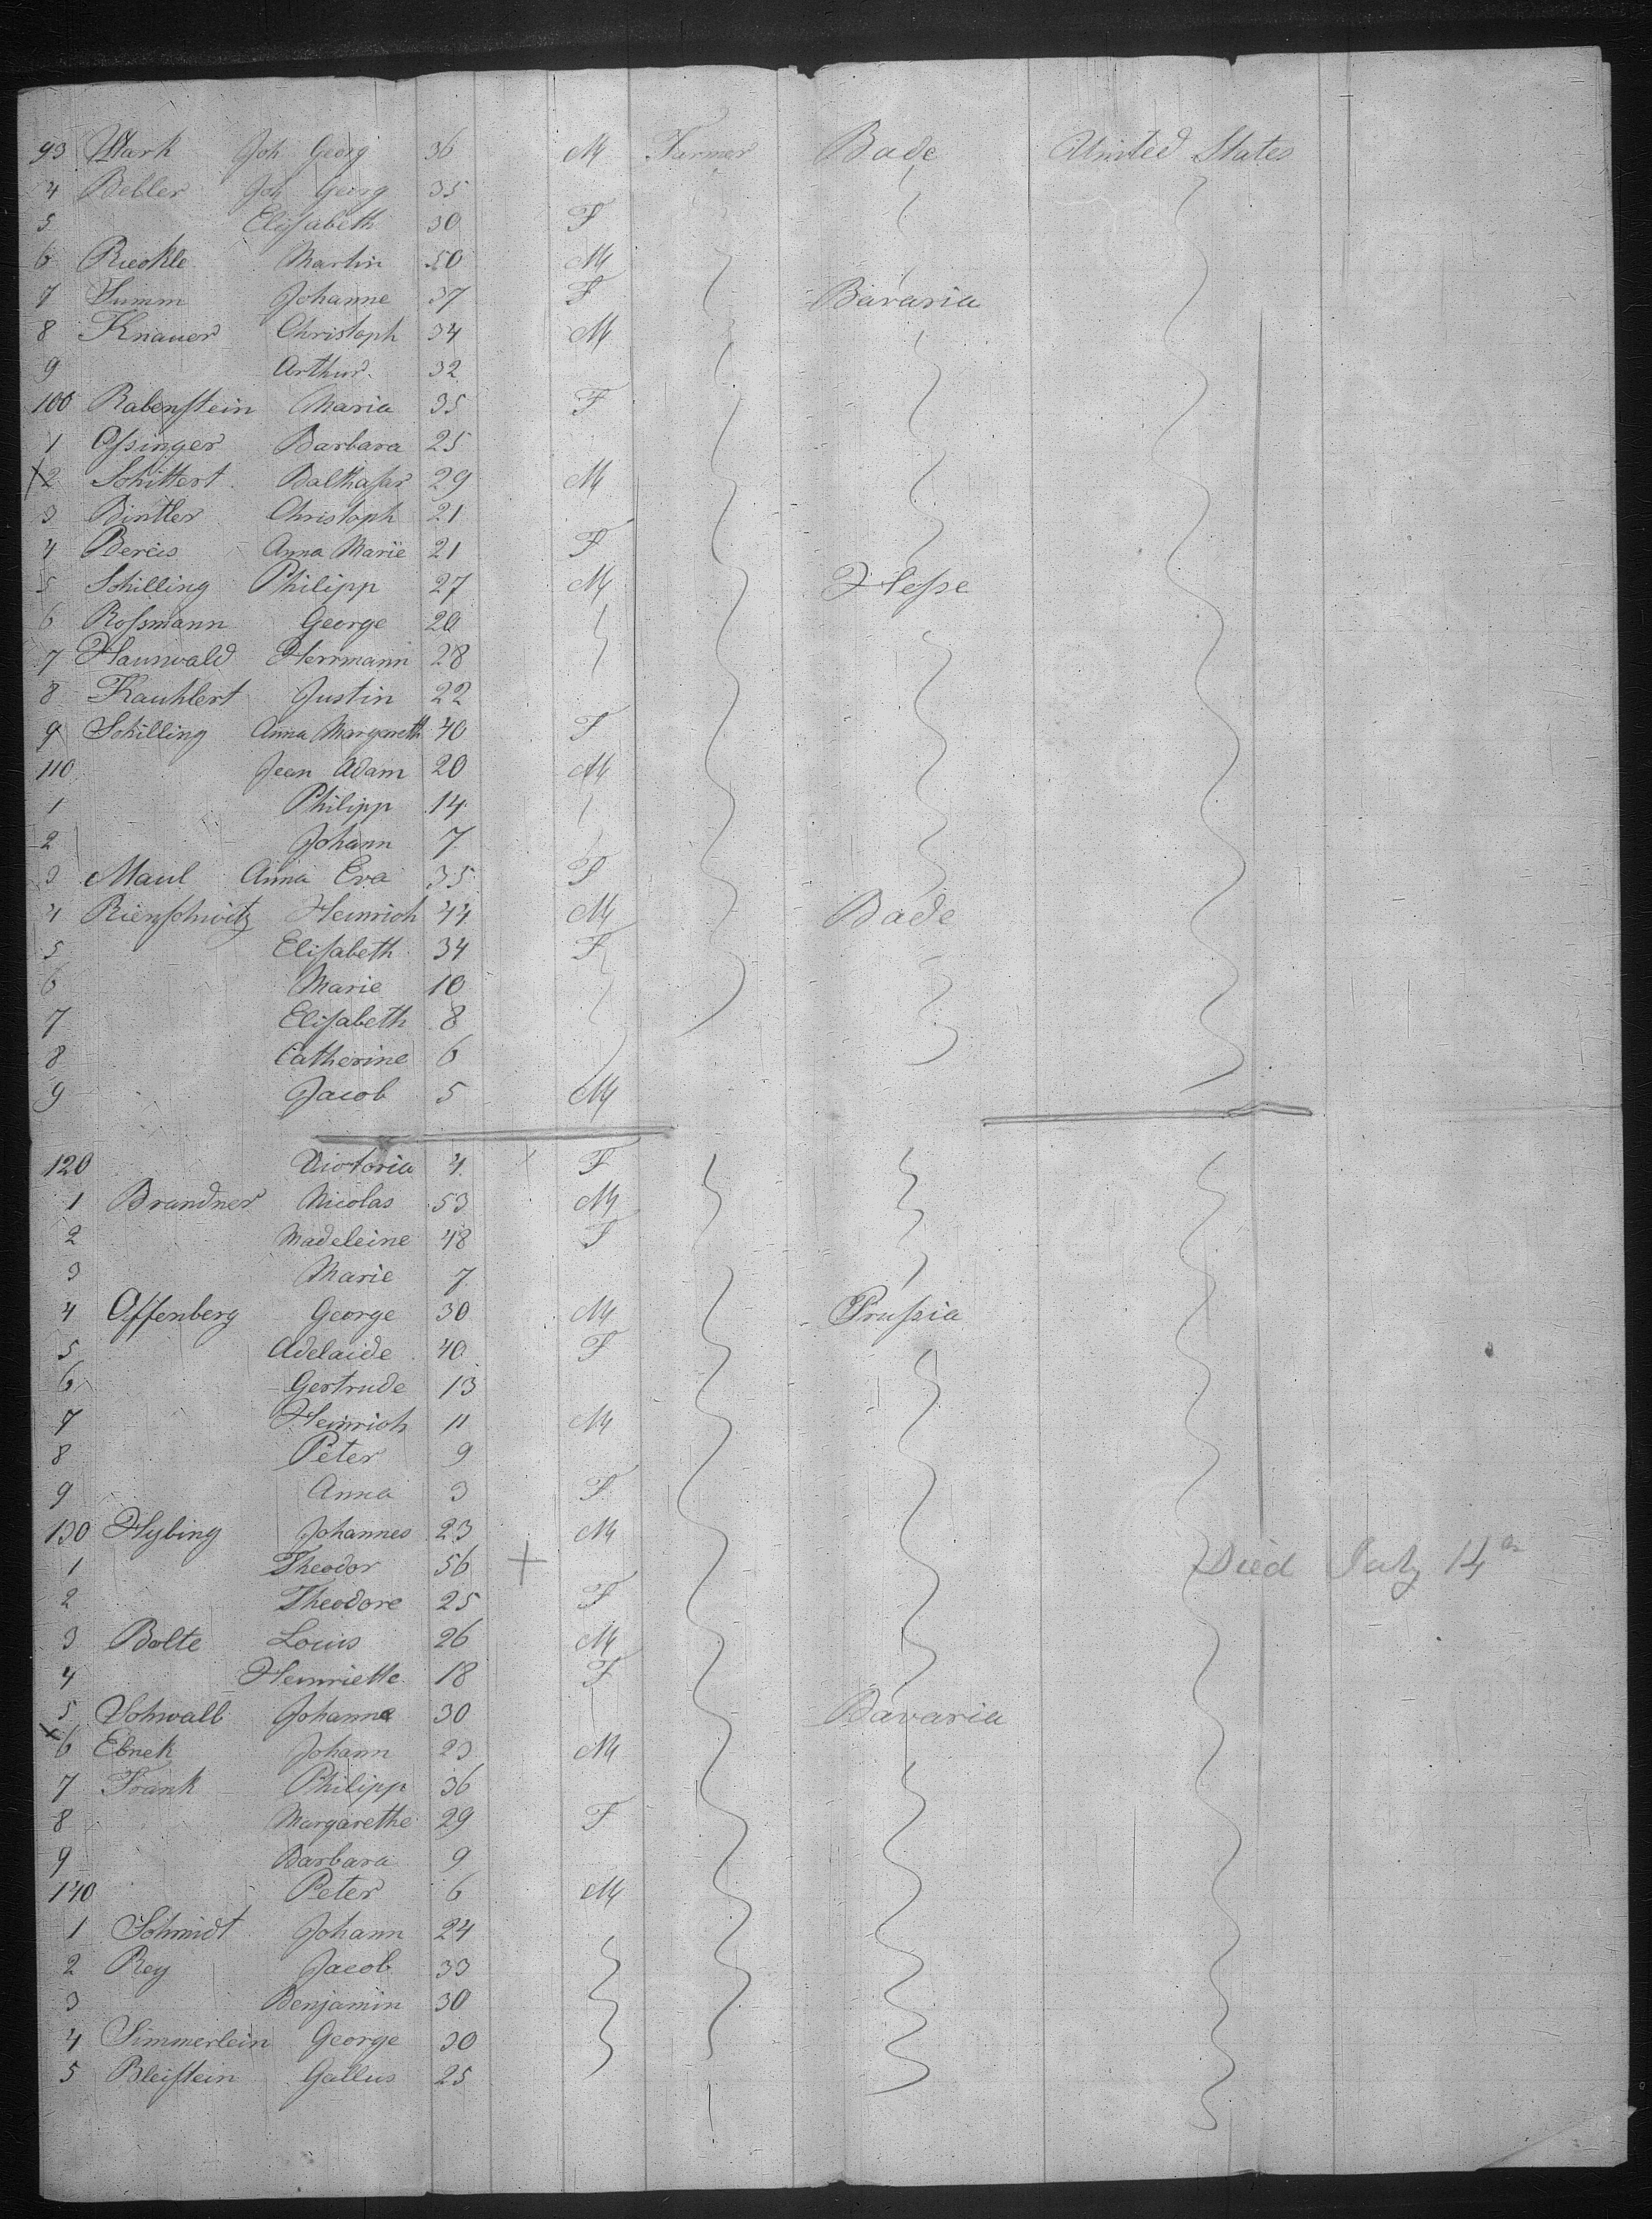 93 Stark Joh Georg 36 M Farmer Bade United States
4 Bebler Joh Georg 35
5 Elisabeth 30 F
6 Rueckle Martin 50 M
7 Summ Johanne 37 F Bavaria
8 Knauer Christoph 34 M
9 Arthur 32
100 Rabenstein Maria 35 F
1 Ossinger Barbara 25
2 Schittert Balthasar 29 M
3 Bintler Christoph 21
4 Anna Marie 21 F
5 Schilling Philipp 27 M Hesse
6 Rossmann George 20
7 Hauswald Herrmann 28
8 Kauhlert Justin 22
9 Schilling Anna Margareth 40 F
110 Jean Adam 20 M
1 Philipp 14
2 Johann 7
3 Maul Anna Eva 35 F
4 Rienschwitz Heinrich 44 M Bade
5 Elisabeth 34 F
6 Marie 10
7 Elisabeth 8
8 Catherine 6
9 Jacob 5 M
120 Victoria 4 F
1 Brandner Nicolas 53 M
2 Madeleine 48 F
3 Marie 7
4 Offenberg George 30 M Prussia
5 Adelaide 40 F
6 Gertrude 13
7 Heinrich 11 M
8 Peter 9
9 Anna 3 F
130 Hybing Johannes 23 M
1 Theodor 56 + Died July 14
2 Theodore 25 F
3 Bolte Louis 26 M
4 Henriette 18 F
5 Schwalb Johanna 30 Bavaria
6 Ebnek Johann 23 M
7 Frank Philipp 36
8 Margarethe 29 F
9 Barbara 9
140 Peter 6 M
1 Schmidt Johann 24
2 Rey Jacob 33
3 Benjamin 30
4 Simmerlein George 30
5 Bleistein Gallus 25